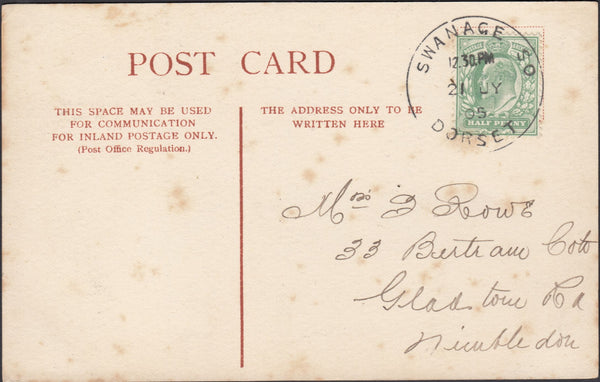 POST CARD
THIS SPACE MAY BE USED
FOR COMMUNICATION
FOR INLAND POSTAGE ONLY.
(Post Office Regulation.)
THE ADDRESS ONLY TO BE
WRITTEN HERE
SWANAGE S.O
12.30PM
21 JY
05
DORSET
HALF PENNY
Mrs Rowe
33 Bertram Cots
Gladstone Rd
Wimbledon